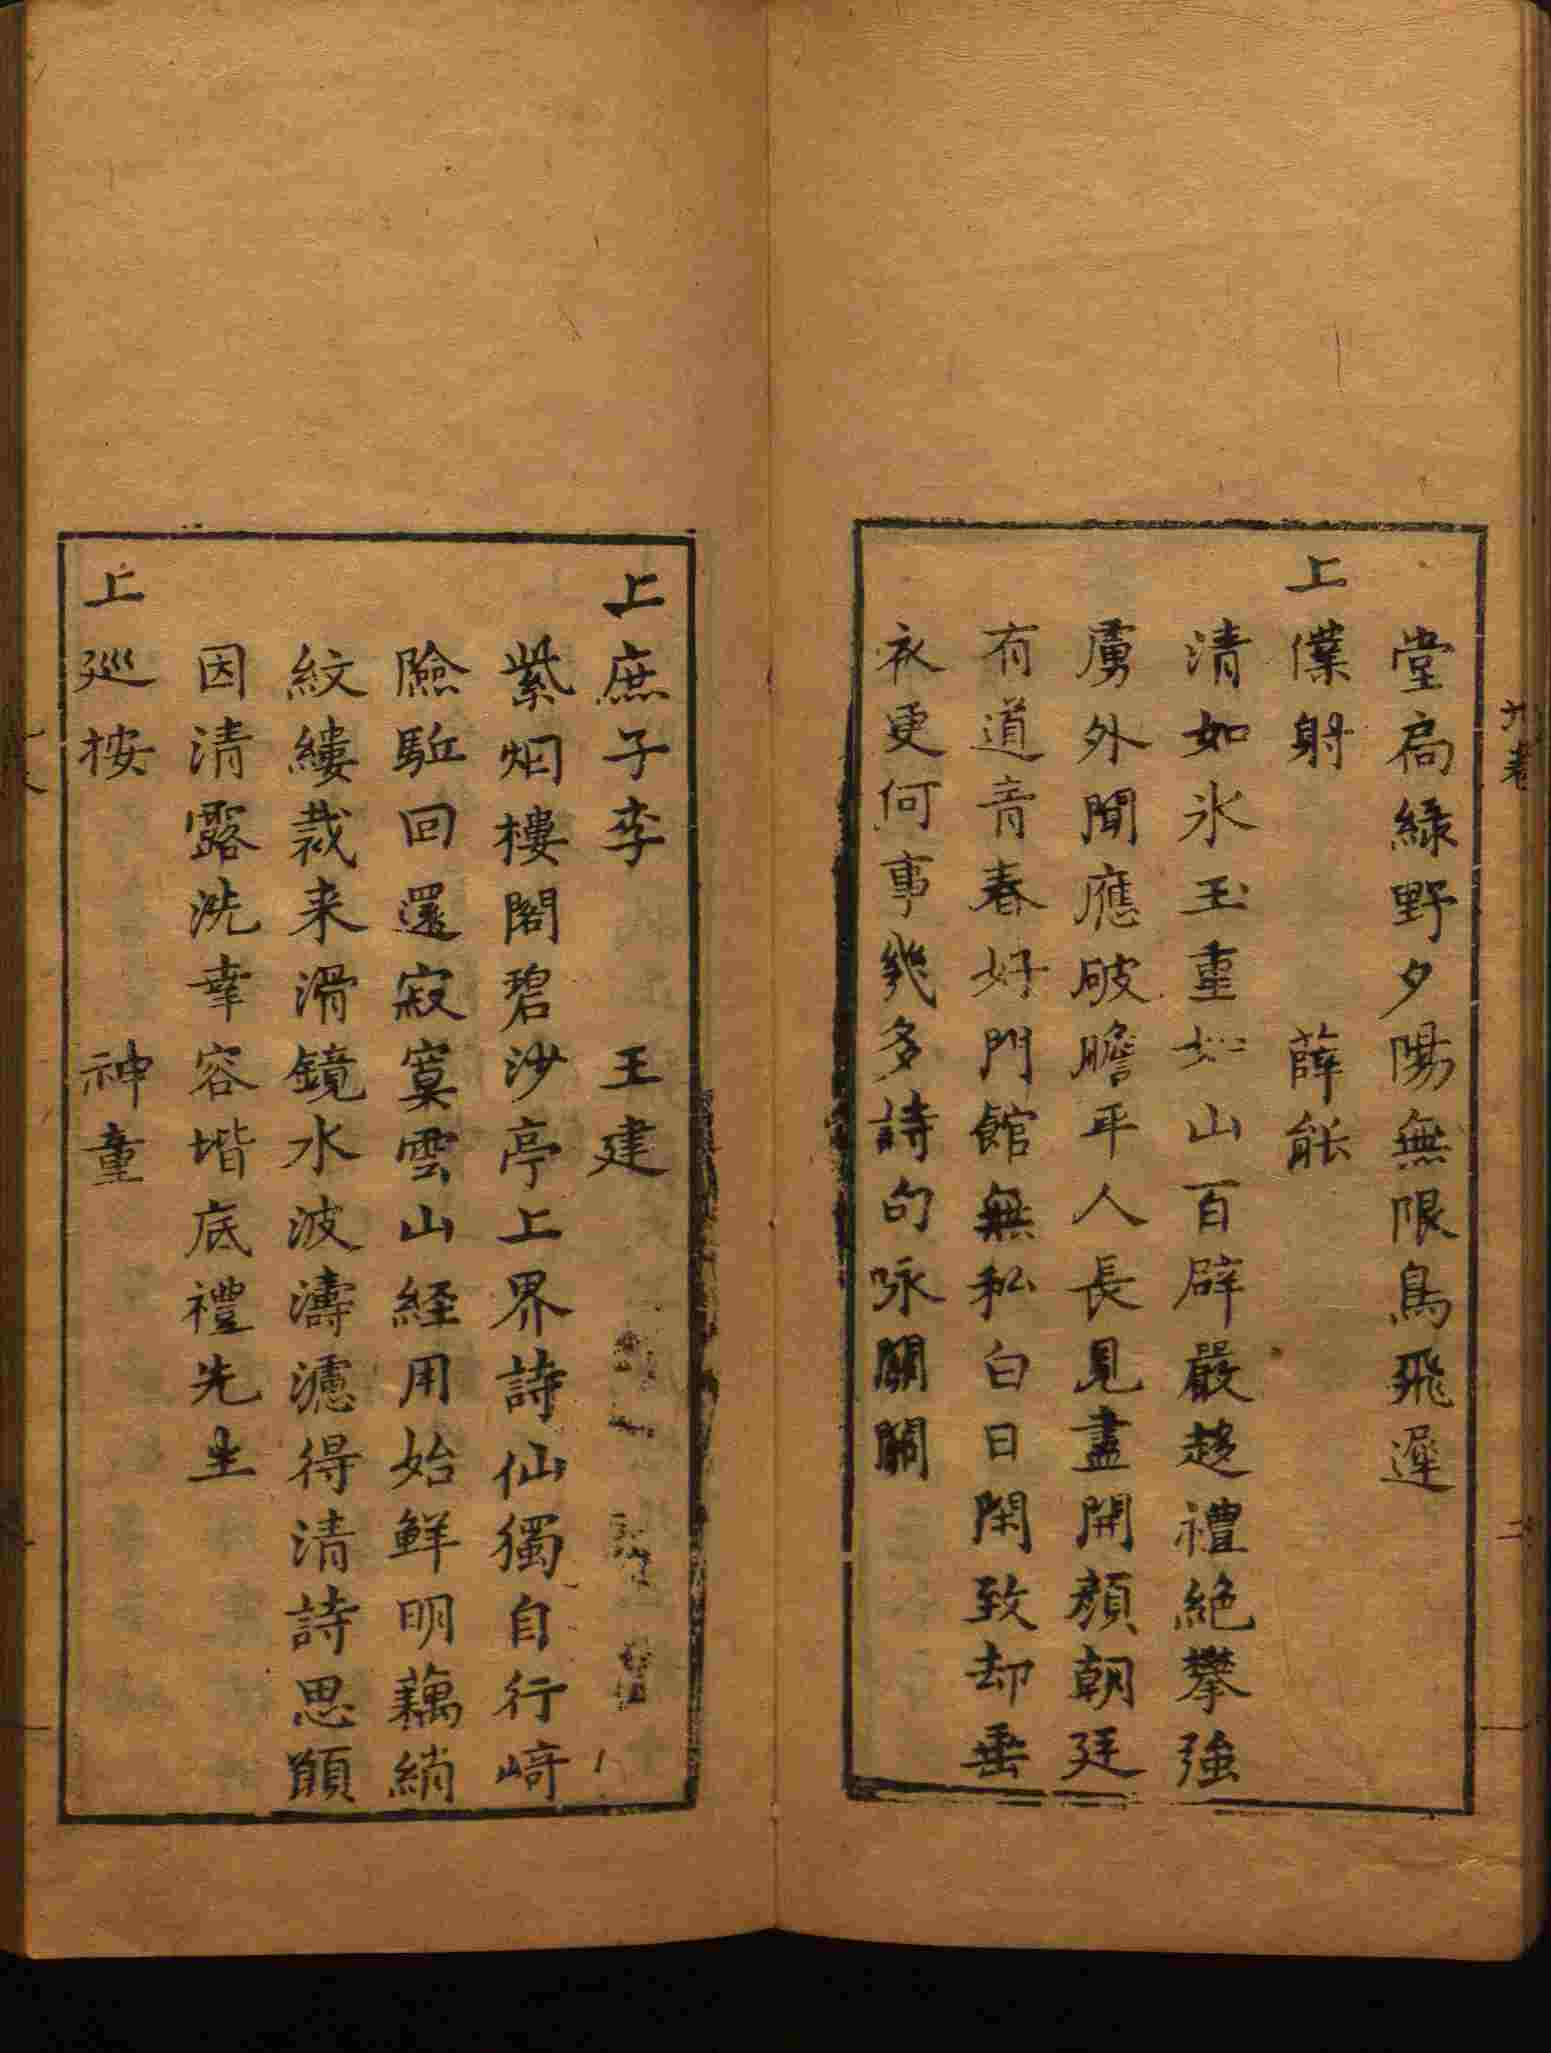 堂局緑野夕陽無限鳥飛遲
上僕射　薛能
清如氷玉重如山百辟嚴趍禮絶攀強
虜外聞應破膽平人長見盡開顔朝廷
有道青春好門館無私白日閑致却垂
衣更何事幾多詩句咏關關
上庶子李　王建
紫烟樓閣碧沙亭上界詩仙獨自行﨑
險駈回還寂寞雲山経用始鮮明藕綃
紋縷裁来滑鏡水波濤濾得清詩思願
因清露洗幸容堦底禮先生
上巡按　神童